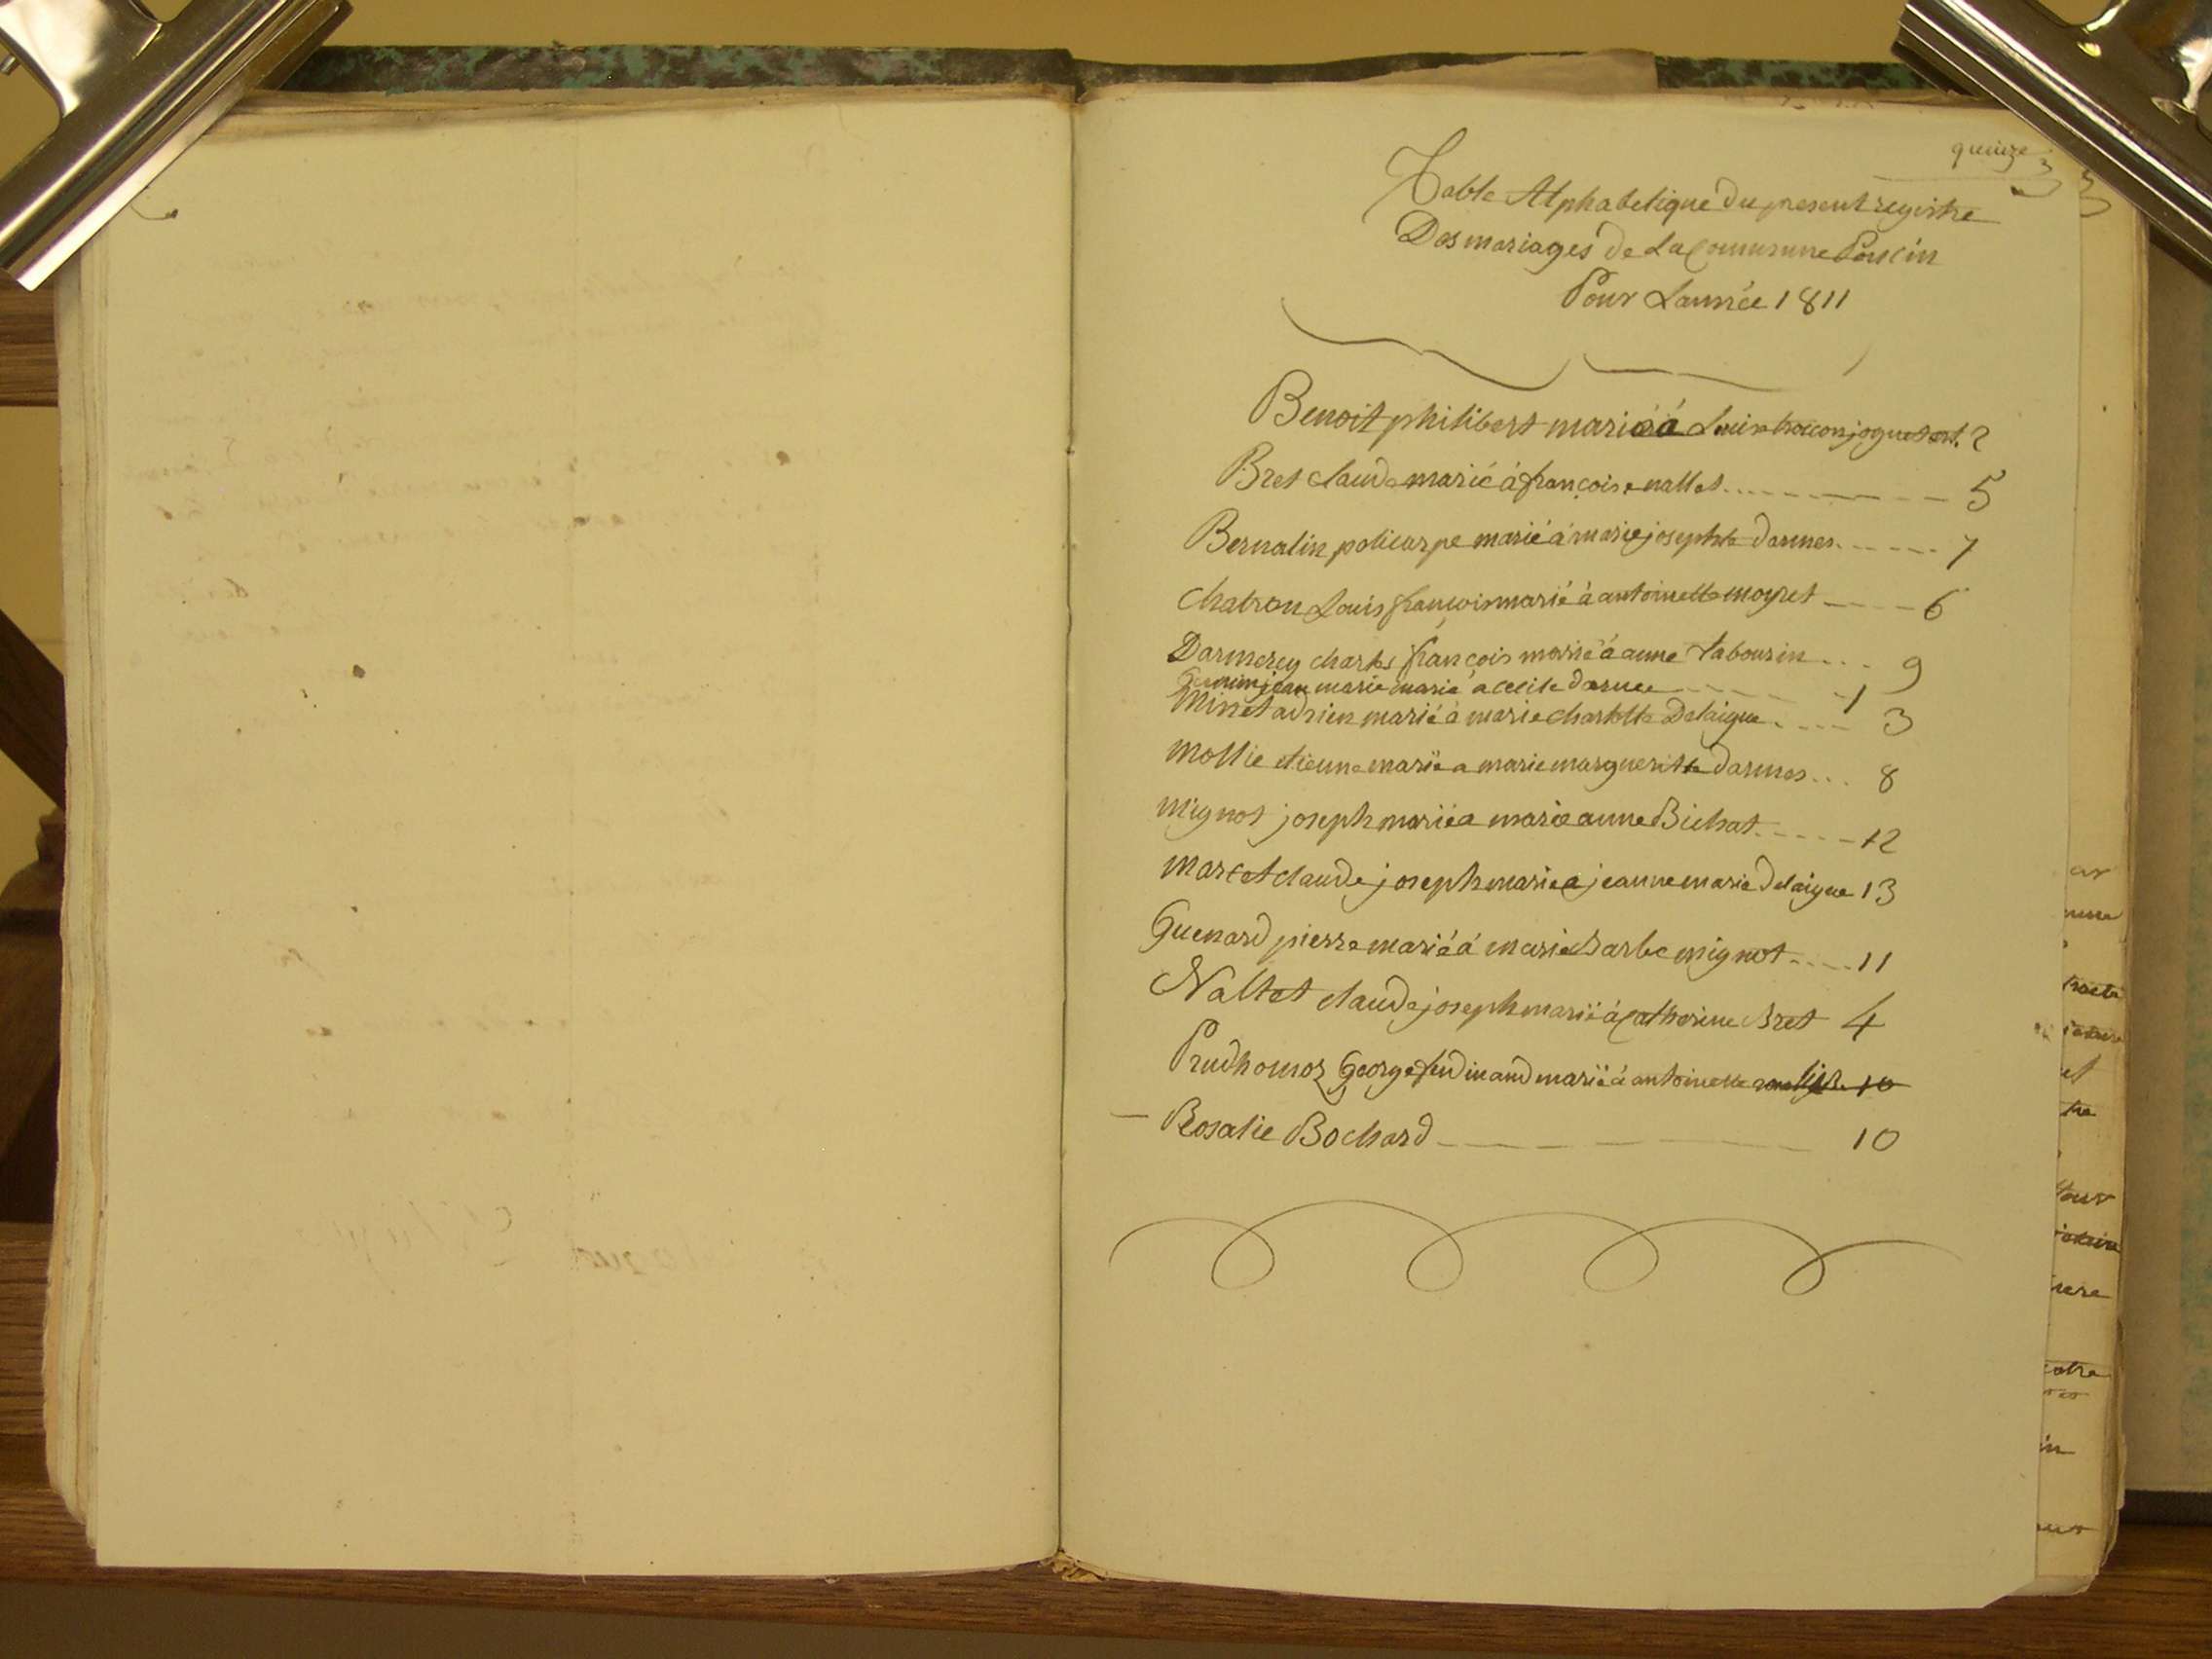 quinze
Table Alphabetique du present registre
Des mariages de La Commune Poncin
Pour L'année 1811
Benoit philibert marié á joguet art. 2
Bret claude marié á françoise nallet 5
Bernalin policarpe marié á marie josephte darmes 7
chatron Louis françois marié á antoinette moyret 6
Darmerey charles françois marié á anne tabourin 9
jean marie marié a cecile darmes 1
Minet adrien marié á marie charlotte Delaigue 3
Mollie etienne marié a marie margueritte darmes 8
Mignot joseph marié a marie anne Bichat 12
Marcet claude joseph marié a jeanne marie delaigue 13
Guenard pierre marié á marie Barbe mignot 11
Nallet claude joseph marié á catherine Bret 4
Prudhomoz George ferdinand marié á antoinette 10
— Rosalie Bochard 10